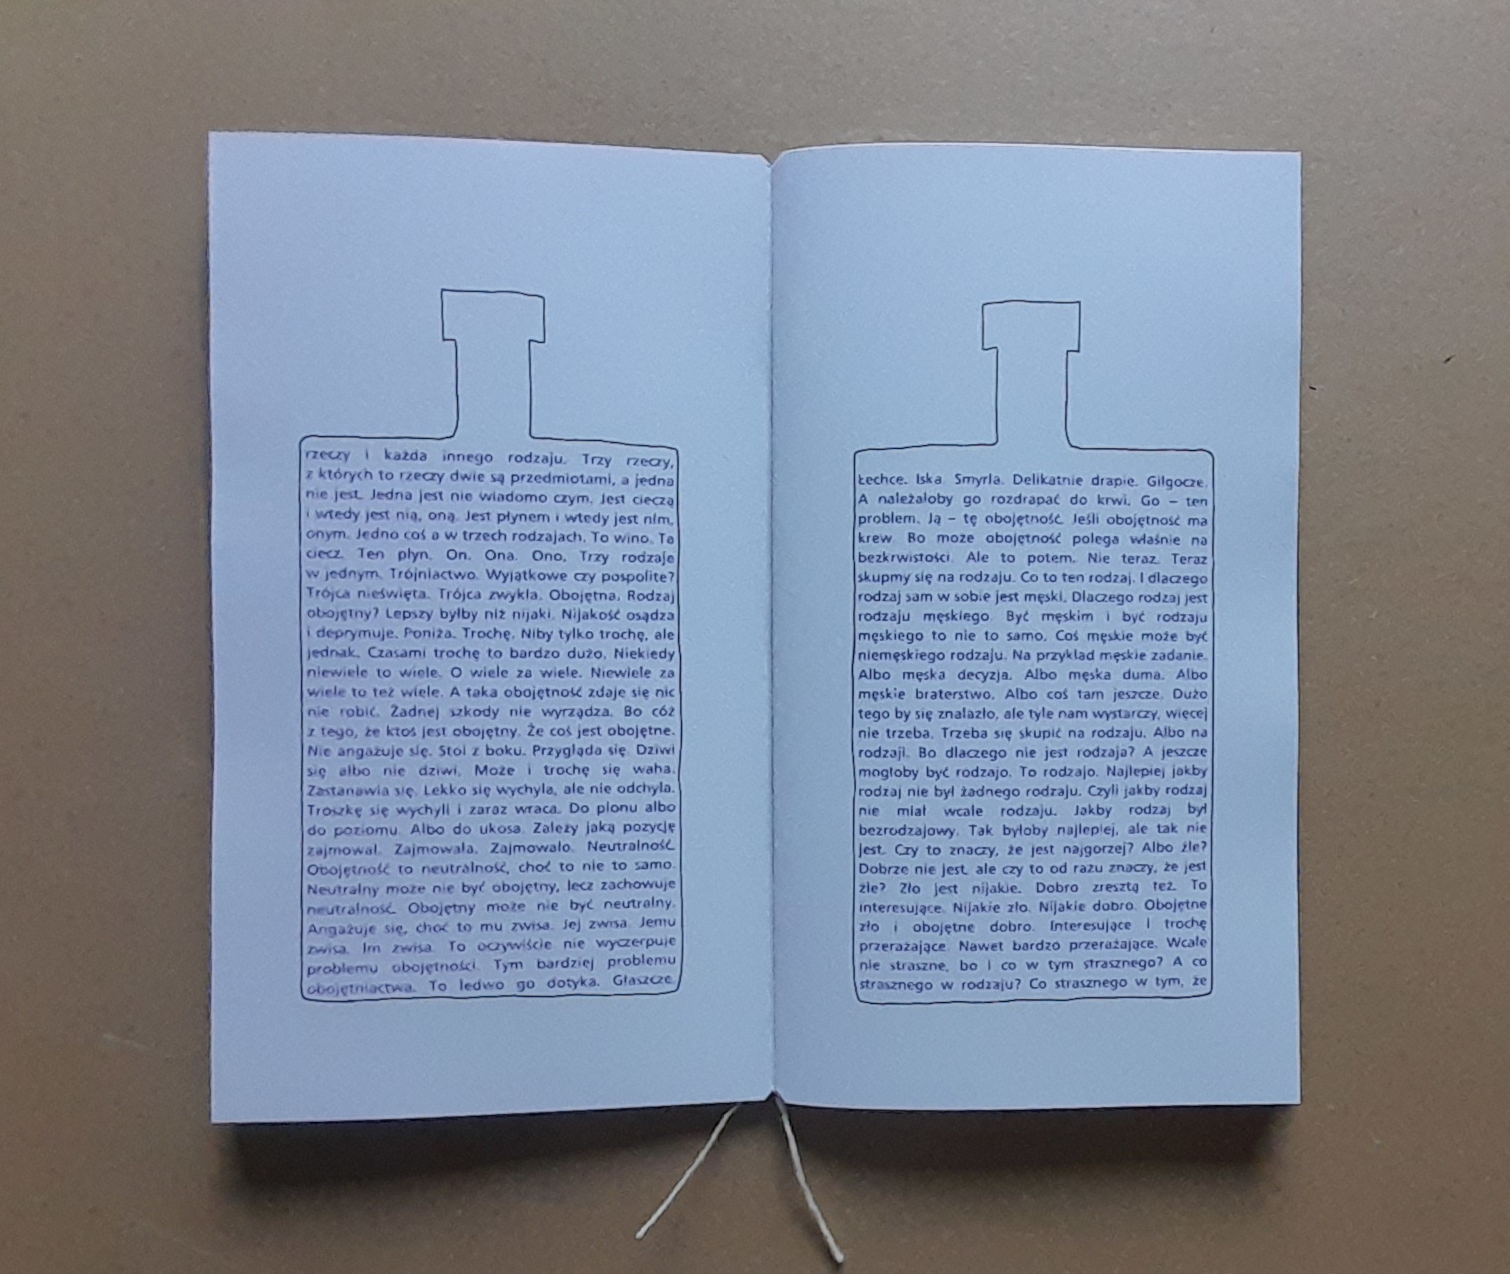 rzeczy i każda innego rodzaju. Trzy rzeczy,
z których to rzeczy dwie są przedmiotami, a jedna
nie jest. Jedna jest nie wiadomo czym. Jest cieczą
i wtedy jest nią, oną. Jest płynem i wtedy jest nim,
onym. Jedno coś a w trzech rodzajach. To wino. Ta
ciecz. Ten płyn. On. Ona. Ono. Trzy rodzaje
w jednym. Trójniactwo. Wyjątkowe czy pospolite?
Trójca nieświęta. Trójca zwykła. Obojętna. Rodzaj
obojętny? Lepszy byłby niż nijaki. Nijakość osądza
i deprymuje. Poniża. Trochę. Niby tylko trochę, ale
jednak. Czasami trochę to bardzo dużo. Niekiedy
niewiele to wiele. O wiele za wiele. Niewiele za
wiele to też wiele. A taka obojętność zdaje się nic
nie robić. Żadnej szkody nie wyrządza. Bo cóż
z tego, że ktoś jest obojętny. Że coś jest obojętne.
Nie angażuje się. Stoi z boku. Przygląda się. Dziwi
się albo nie dziwi. Może i trochę się waha.
Zastanawia się. Lekko się wychyla, ale nie odchyla.
Troszkę się wychyli i zaraz wraca. Do pionu albo
do poziomu. Albo do ukosa. Zależy jaką pozycję
zajmował. Zajmowała. Zajmowało. Neutralność.
Obojętność to neutralność, choć to nie to samo.
Neutralny może nie być obojętny, lecz zachowuje
neutralność. Obojętny może nie być neutralny.
Angażuje się, choć to mu zwisa. Jej zwisa. Jemu
zwisa. Im zwisa. To oczywiście nie wyczerpuje
problemu obojętności. Tym bardziej problemu
obojętniactwa. To ledwo go dotyka. Głaszcze.
Łechce. Iska. Smyrla. Delikatnie drapie. Gilgocze.
A należałoby go rozdrapać do krwi. Go – ten
problem. Ją – tę obojętność. Jeśli obojętność ma
krew. Bo może obojętność polega właśnie na
bezkrwistości. Ale to potem. Nie teraz. Teraz
skupmy się na rodzaju. Co to ten rodzaj. I dlaczego
rodzaj sam w sobie jest męski. Dlaczego rodzaj jest
rodzaju męskiego. Być męskim i być rodzaju
męskiego to nie to samo. Coś męskie może być
niemęskiego rodzaju. Na przykład męskie zadanie.
Albo męska decyzja. Albo męska duma. Albo
męskie braterstwo. Albo coś tam jeszcze. Dużo
tego by się znalazło, ale tyle nam wystarczy, więcej
nie trzeba. Trzeba się skupić na rodzaju. Albo na
rodzaji. Bo dlaczego nie jest rodzaja? A jeszcze
mogłoby być rodzajo. To rodzajo. Najlepiej jakby
rodzaj nie był żadnego rodzaju. Czyli jakby rodzaj
nie miał wcale rodzaju. Jakby rodzaj był
bezrodzajowy. Tak byłoby najlepiej, ale tak nie
jest. Czy to znaczy, że jest najgorzej? Albo źle?
Dobrze nie jest, ale czy to od razu znaczy, że jest
źle? Zło jest nijakie. Dobro zresztą też. To
interesujące. Nijakie zło. Nijakie dobro. Obojętne
zło i obojętne dobro. Interesujące i trochę
przerażające. Nawet bardzo przerażające. Wcale
nie straszne, bo i co w tym strasznego? A co
strasznego w rodzaju? Co strasznego w tym, że